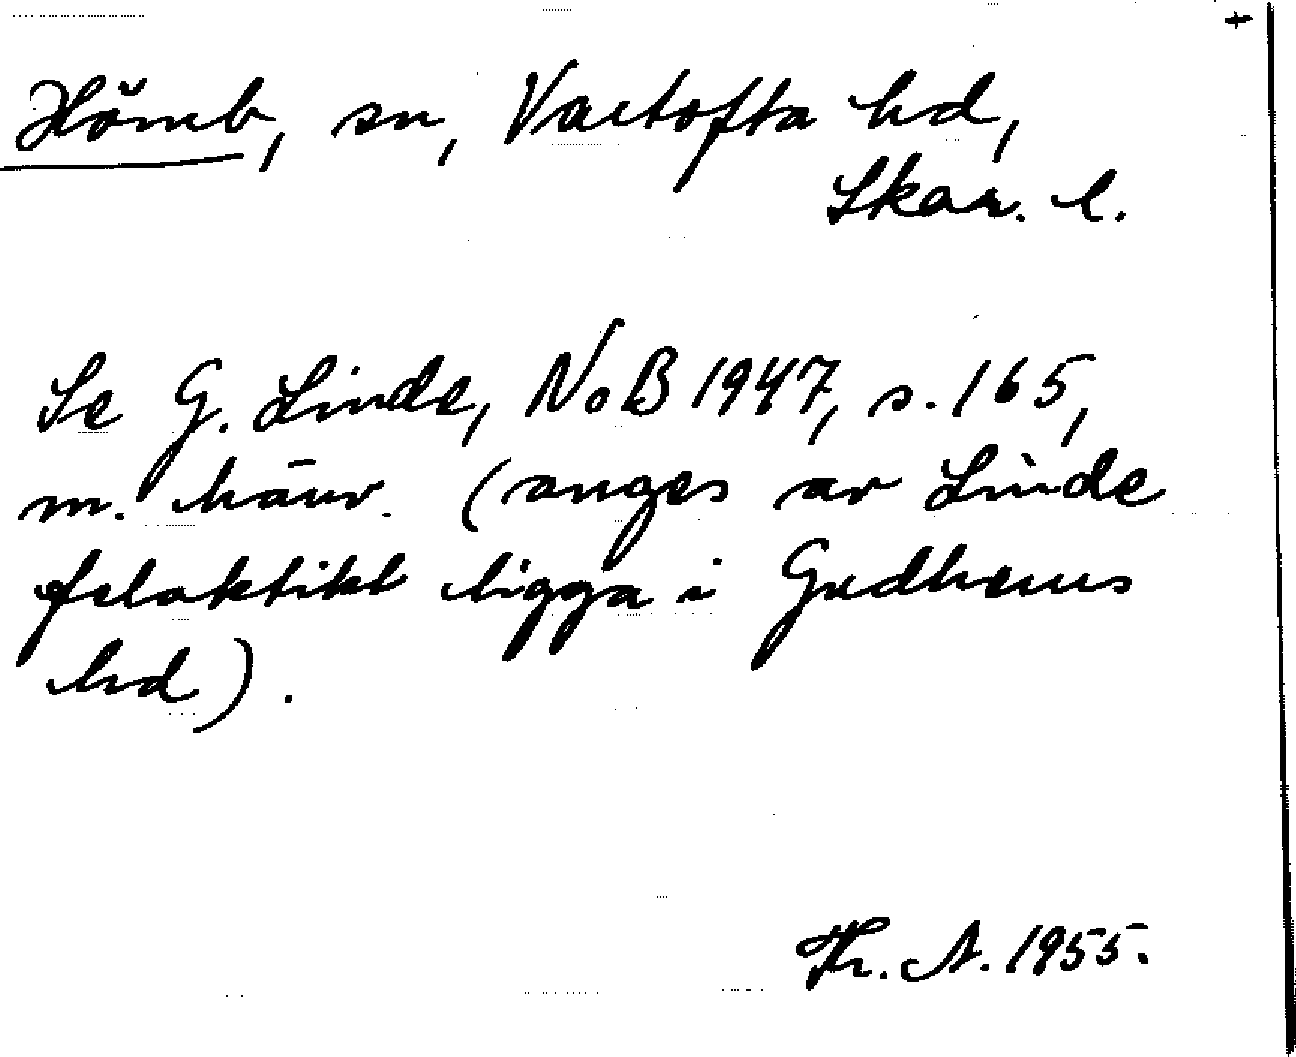 +
Hömb, sn, Vartofta hd,
Skar. l.
Se G. Linde, NoB 1947, s. 165,
m. hänv. (anges av Linde
felaktikt ligga i Gudhems
hd).
Th. A. 1955.